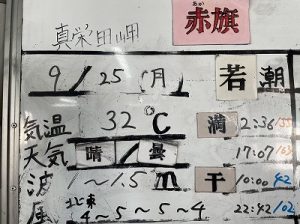 赤旗
あか
真栄田岬
9/25(月) 若潮
気温 32℃ 満 2:36/55
天気 晴/曇 17:07/63
波 1~1.5m 干 10:00/42
風 北東 4~5~5~4 22:42/02